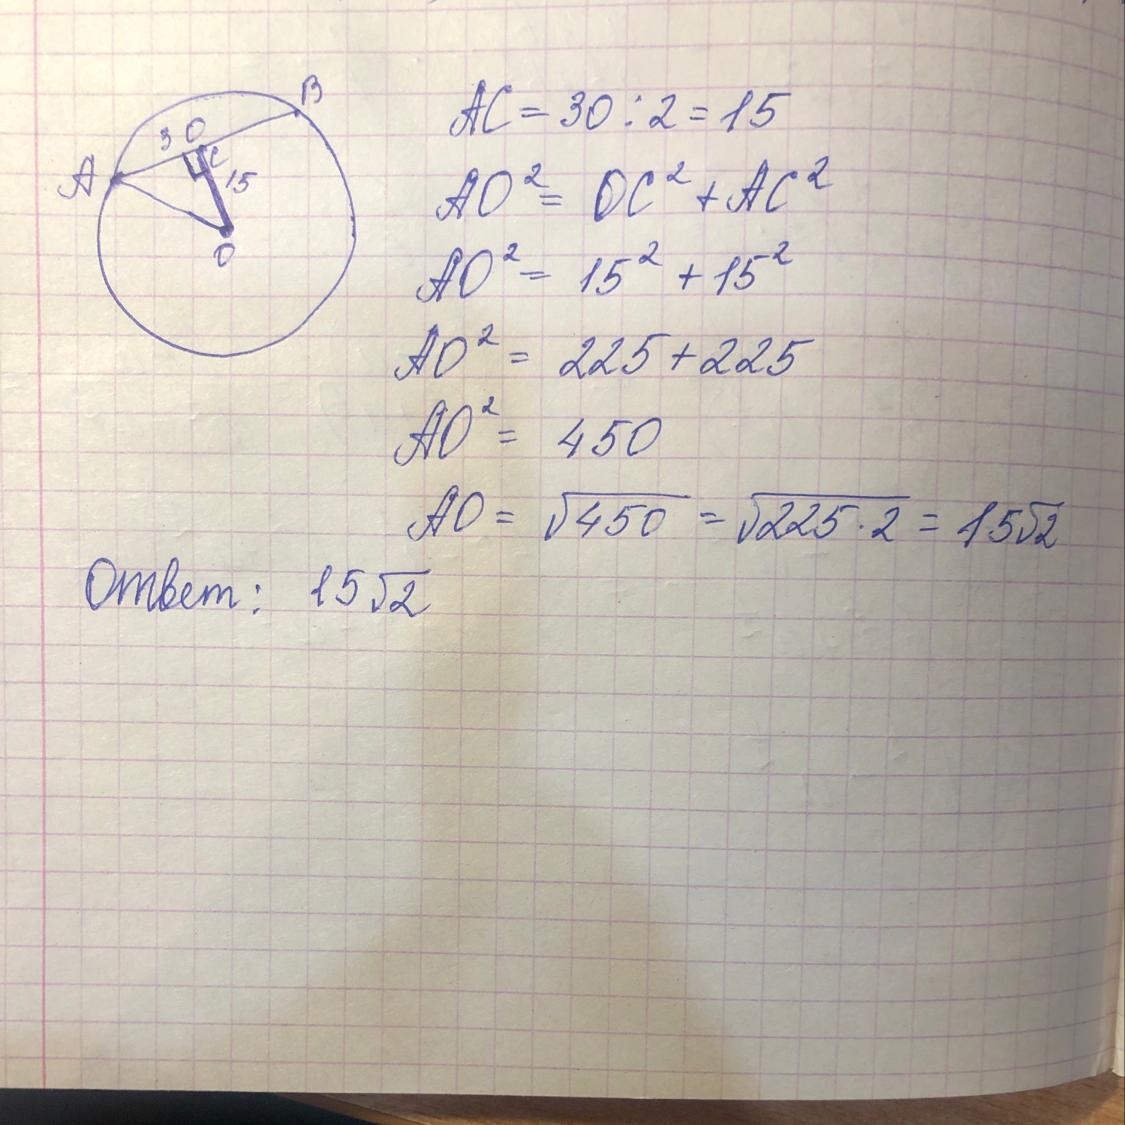 B
30
A
C
15
O
AC = 30 : 2 = 15
AO² = OC² + AC²
AO² = 15² + 15²
AO² = 225 + 225
AO² = 450
AO = √450 = √225·2 = 15√2
Ответ: 15√2